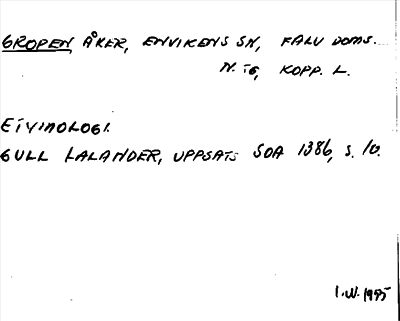 GROPEN, ÅKER, ENVIKENS SN, FALU DOMS.
N. TG, KOPP. L.
ETYMOLOGI.
GULL LALANDER, UPPSATS SOA 1386, S. 10.
I.W. 1995